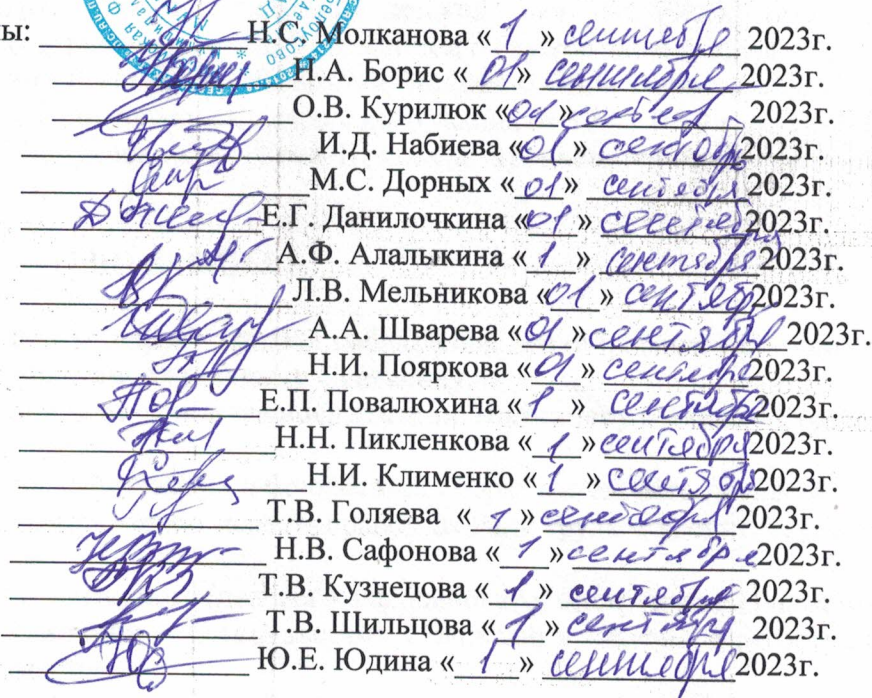 ы: Н.С. Молканова «1» сентября 2023г.
Н.А. Борис «01» сентября 2023г.
О.В. Курилюк «01» 2023г.
И.Д. Набиева «01» сентября 2023г.
М.С. Дорных «01» сентября 2023г.
Е.Г. Данилочкина «01» сентября 2023г.
А.Ф. Алалыкина «1» сентября 2023г.
Л.В. Мельникова «01» сентября 2023г.
А.А. Шварева «01» сентября 2023г.
Н.И. Пояркова «01» сентября 2023г.
Е.П. Повалюхина «1» сентября 2023г.
Н.Н. Пикленкова «1» сентября 2023г.
Н.И. Клименко «1» сентября 2023г.
Т.В. Голяева «1» сентября 2023г.
Н.В. Сафонова «1» сентября 2023г.
Т.В. Кузнецова «1» сентября 2023г.
Т.В. Шильцова «1» сентября 2023г.
Ю.Е. Юдина «1» сентября 2023г.